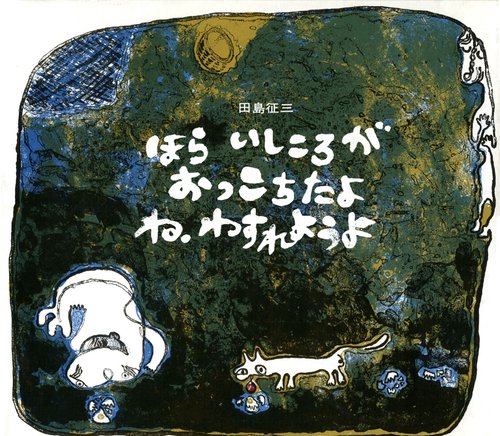 田島征三
ほら いしころが
おっこちたよ
ね、わすれようよ